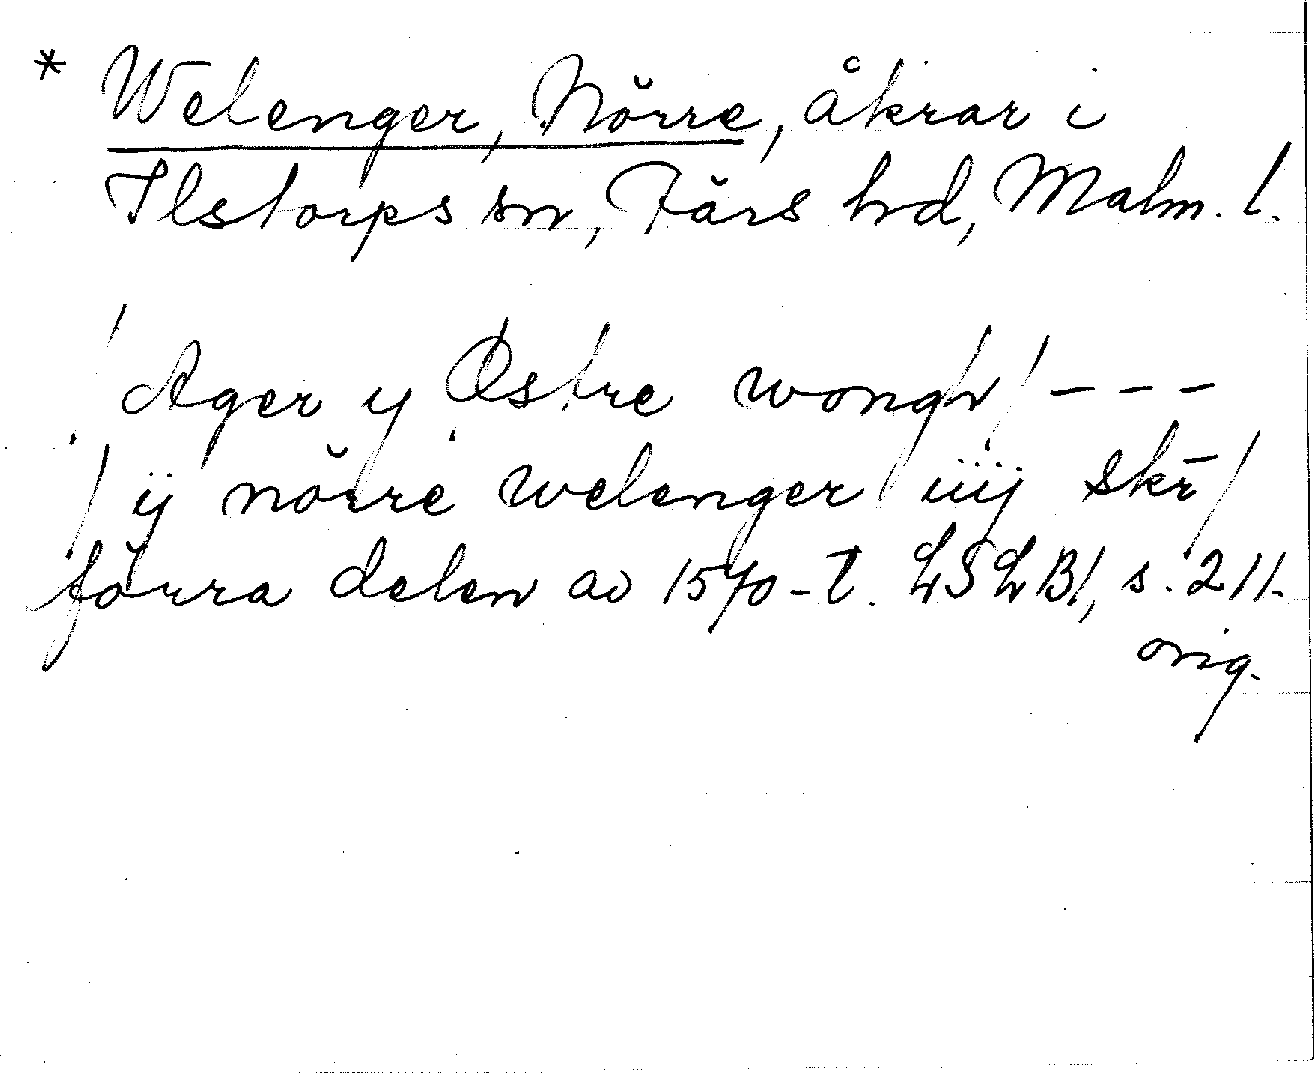 * Welenger, Nörre, åkrar i
Ilstorps sn, Färs hd, Malm. l.
/ Ager y Østre wongh / - - -
/ ÿ nörre welenger iiij skr̄ /
förra delen av 1570-t. LSLB1, s. 211.
orig.